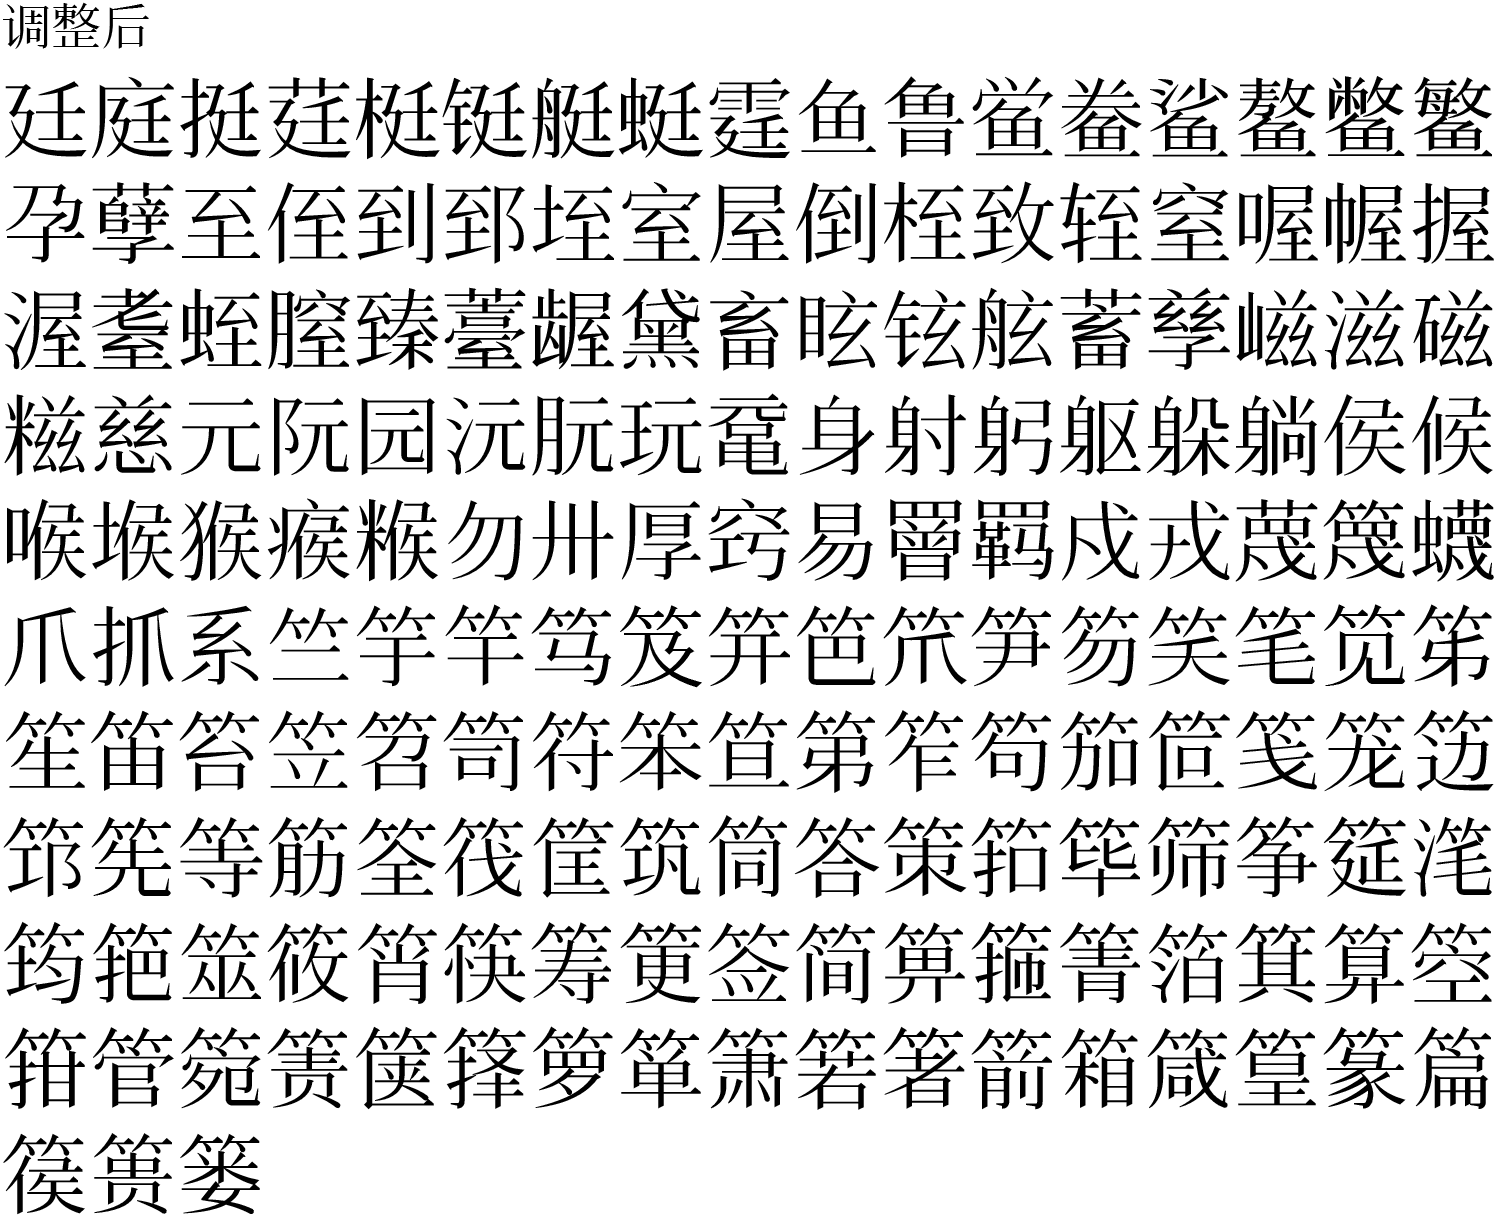 调整后
廷庭挺莛梃铤艇蜓霆鱼鲁鲎鲞鲨鳌鳖鳘
孕孽至侄到郅垤室屋倒桎致轾窒喔幄握
渥耋蛭膣臻薹龌黛畜眩铉舷蓄孳嵫滋磁
糍慈元阮园沅朊玩鼋身射躬躯躲躺侯候
喉堠猴瘊糇勿卅厚窍易罾羁戍戎蔑篾蠛
爪抓系竺竽竿笃笈笄笆笊笋笏笑笔笕笫
笙笛笞笠笤笥符笨笪第笮笱笳笸笺笼笾
筇筅等筋筌筏筐筑筒答策筘筚筛筝筵滗
筠筢筮筱筲筷筹筻签简箅箍箐箔箕算箜
箝管箢箦箧箨箩箪箫箬箸箭箱箴篁篆篇
篌篑篓